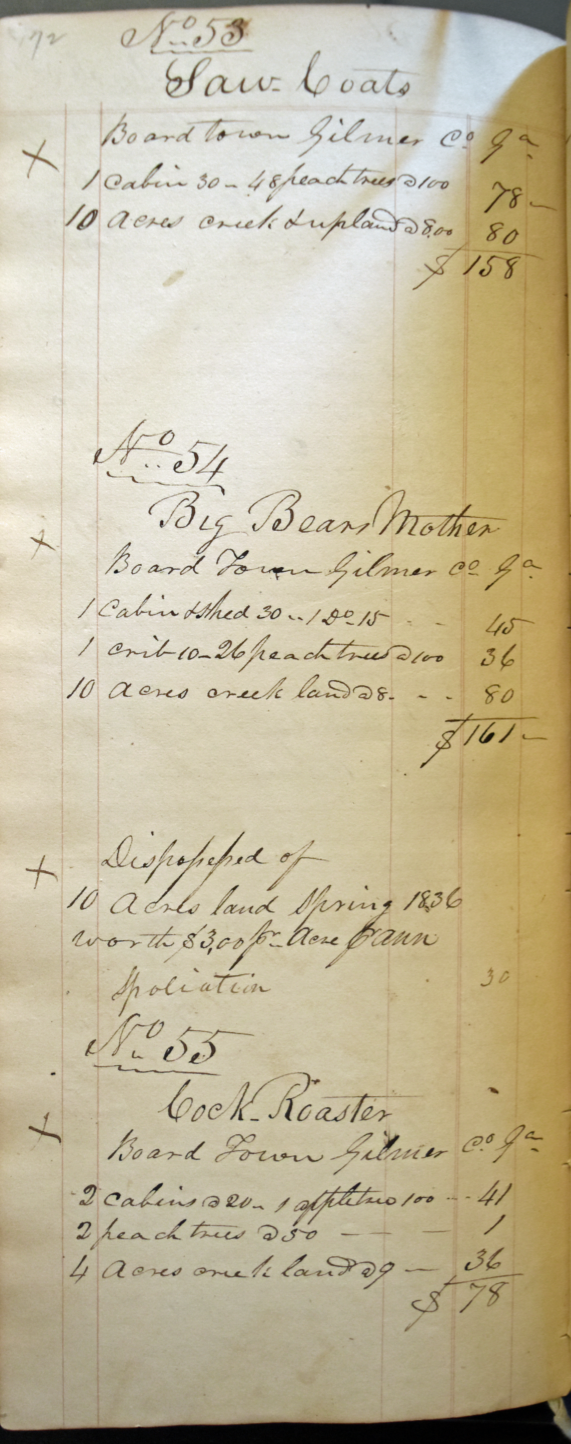 72
No 53
Saw-Coats
Board town Gilmer Co Ga
1 Cabin 30 - 48 peach trees @ 100 78 -
10 Acres creek & upland @ 8.00 80
$ 158
No 54
Big Bears Mother
Board Town Gilmer Co Ga
1 Cabin & Shed 30 .. 1 Do 15 - - 45
1 crib 10 - 26 peach trees @ 100 36
10 Acres creek land @ 8 - - - 80
$ 161 -
Dispossessed of
10 Acres land Spring 1836
worth $3,00 pr Acre p ann
Spoliation 30
No 55
Cock-Roaster
Board Town Gilmer Co Ga
2 Cabins @ 20 - 1 appletree 100 - - 41
2 peach trees @ 50 - - - 1
4 Acres creek land @ 9 - 36
$ 78